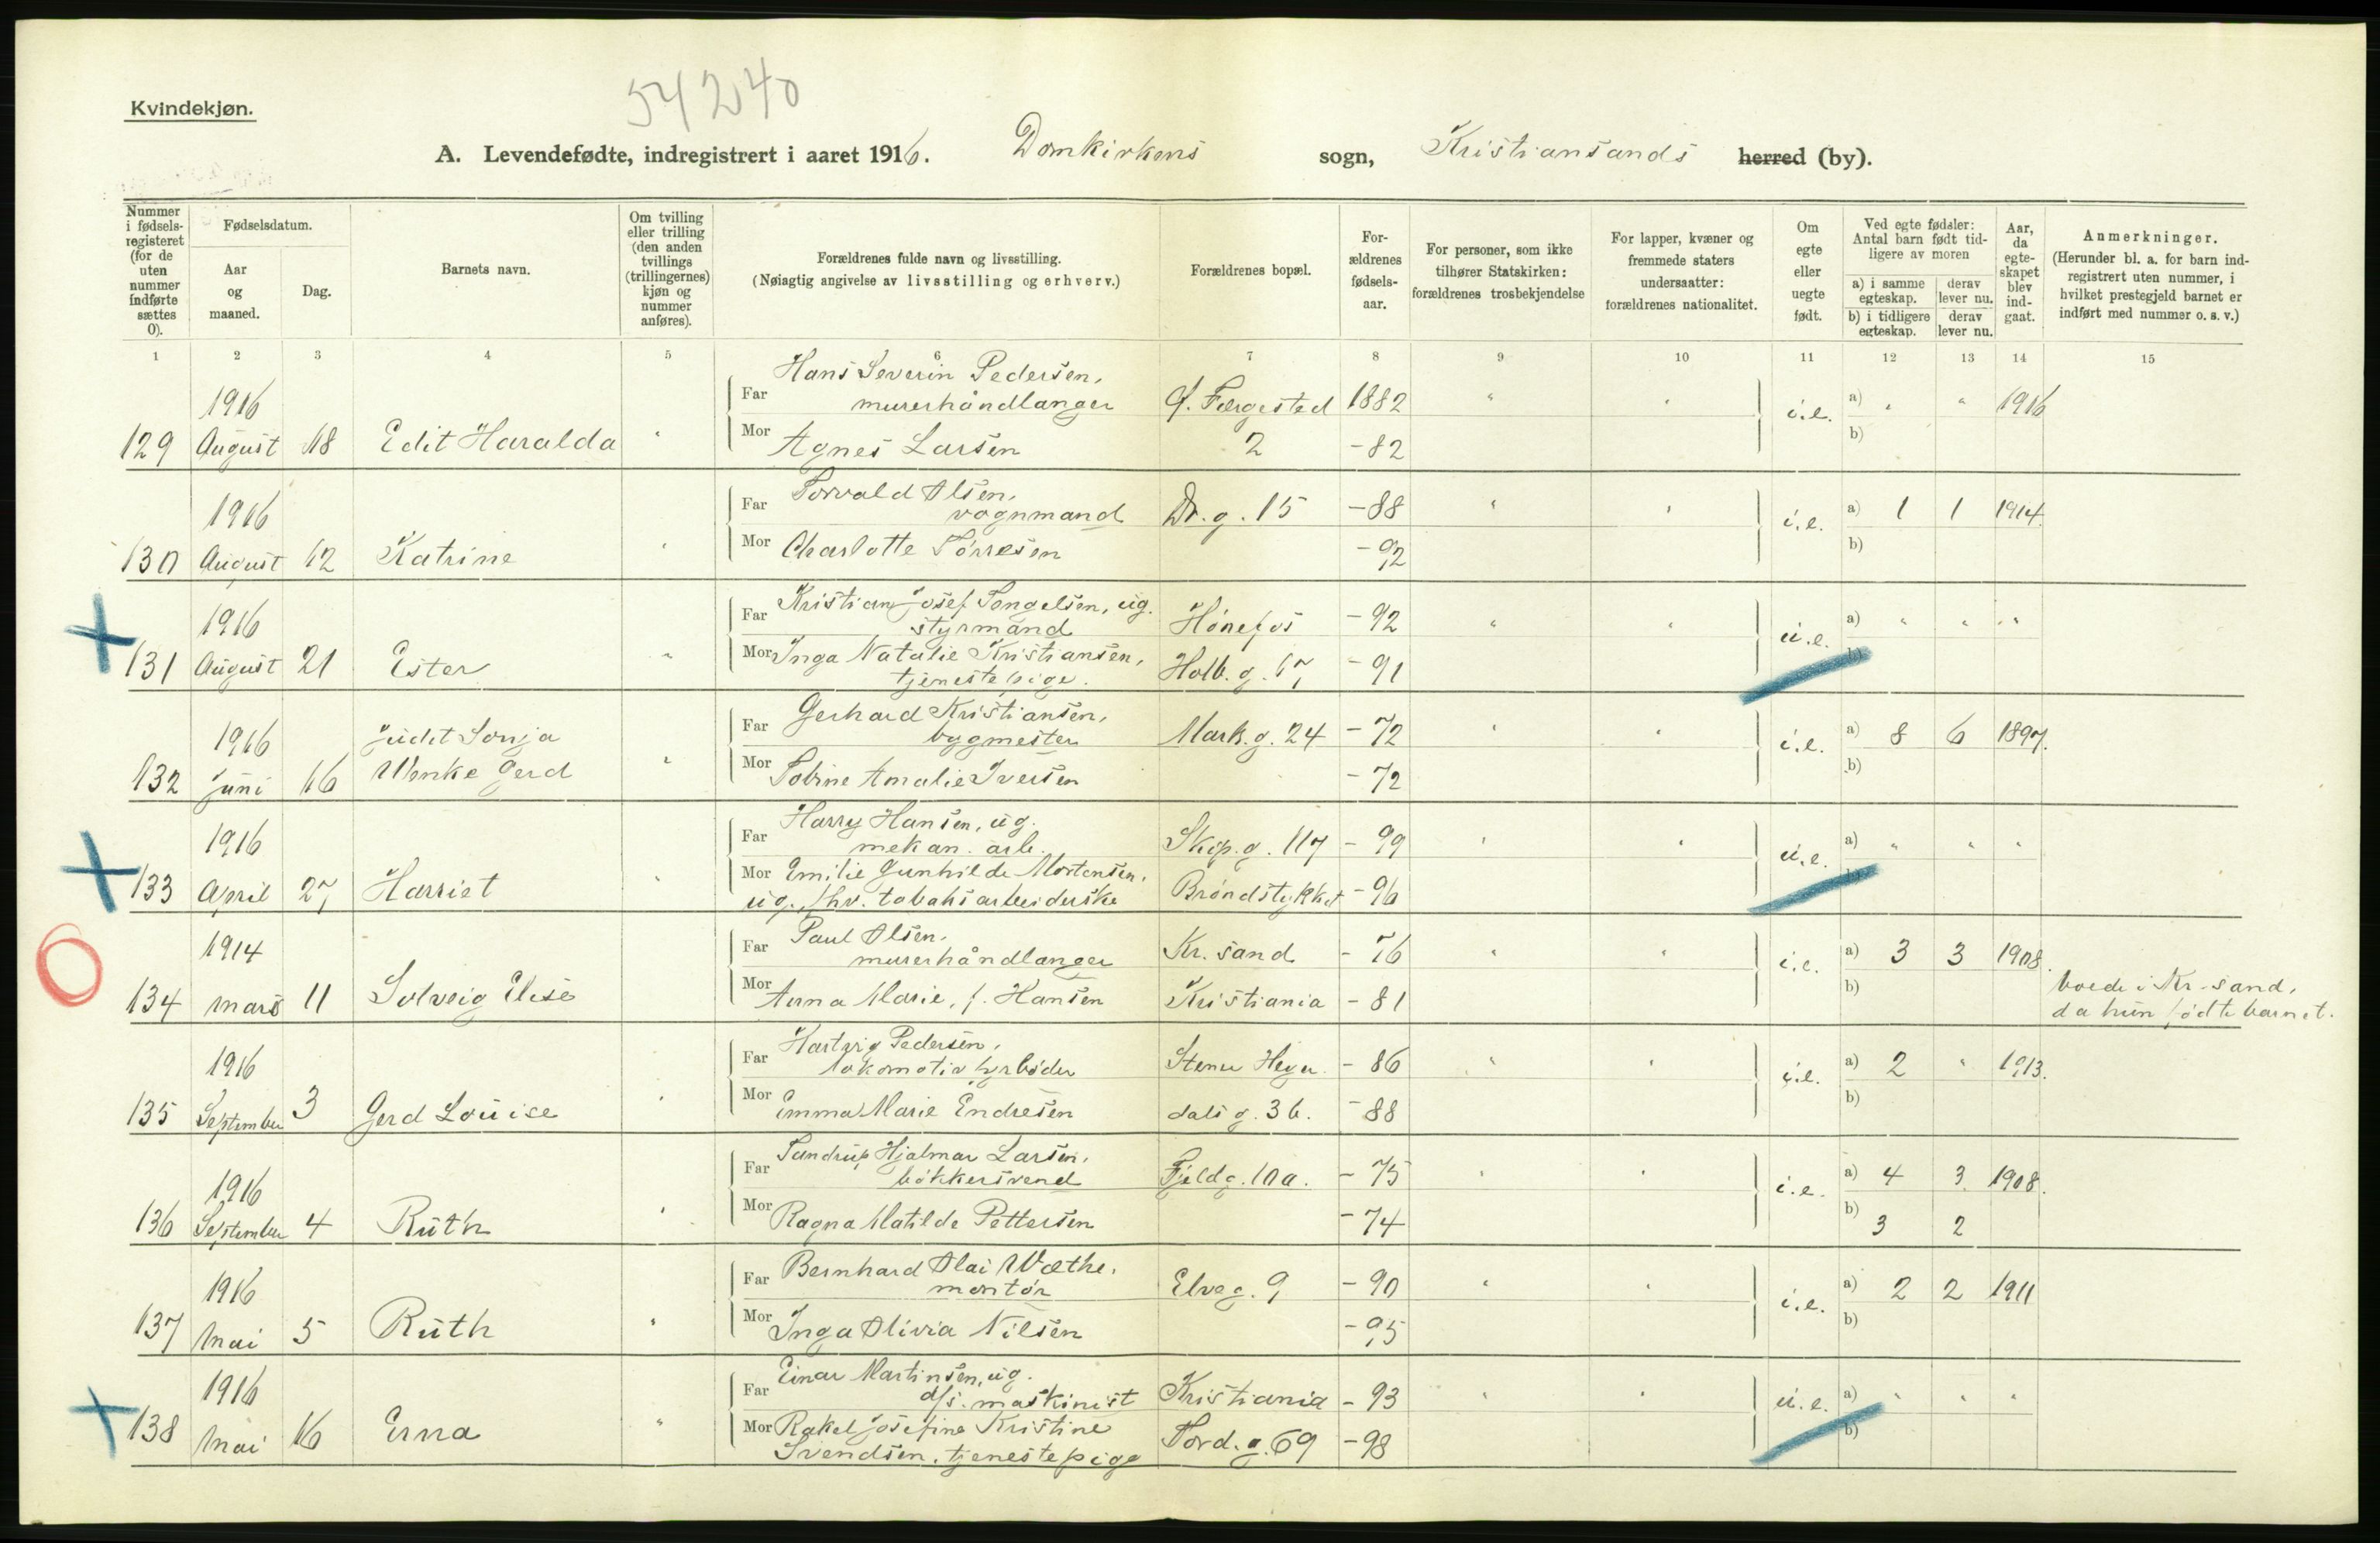 54240
Kvindekjøn.
A. Levendefødte, indregistrert i aaret 1916. Domkirkens sogn, Kristiansands herred (by).
Nummer i fødselsregisteret (for de uten nummer indførte sættes 0).
Fødselsdatum.
Aar og maaned.
Dag.
Barnets navn.
Om tvilling eller trilling (den anden tvillings (trillingernes) kjøn og nummer anføres).
Forældrenes fulde navn og livsstilling.
(Nøiagtig angivelse av livsstilling og erhverv.)
Forældrenes bopæl.
Forældrenes fødselsaar.
For personer, som ikke tilhører Statskirken: forældrenes trosbekjendelse
For lapper, kvæner og fremmede staters undersaatter: forældrenes nationalitet.
Om egte eller uegte født.
Ved egte fødsler: Antal barn født tidligere av moren
a) i samme egteskap. derav lever nu.
b) i tidligere egteskap. derav lever nu.
Aar, da egteskapet blev indgaat.
Anmerkninger.
(Herunder bl. a. for barn indregistrert uten nummer, i hvilket prestegjeld barnet er indført med nummer o. s. v.)
1 2 3 4 5 6 7 8 9 10 11 12 13 14 15
129 1916 August 18 Edit Haralda "
Far Hans Severin Pedersen, murerhåndlanger 1882 " " i.e. a) " " 1916
Mor Agnes Larsen 2 -82 b)
130 1916 August 12 Katrine "
Far Torvald Olsen, vognmand Dr. g. 15 -88 " " i.e. a) 1 1 1914.
Mor Charlotte Tørresen -92 b)
131 1916 August 21 Ester "
Far Kristian Josef Tengelsen, ug. styrmand Hønefos -92 " " u.e. a) " " "
Mor Inga Natalie Kristiansen, tjenestepige. Holb. g. 67 -91 b)
132 1916 Juni 16 Judit Sonja Wenke Gerd "
Far Gerhard Kristiansen, bygmester Mark. g. 24 -72 " " i.e. a) 8 6 1897.
Mor Tobine Amalie Iversen -72 b)
133 1916 April 27 Harriet "
Far Harry Hansen, ug. mekan. arb. Skip. g. 117 -99 " " u.e. a) " " "
Mor Emilie Gunhilde Mortensen, ug. fhv. tobaksarbeiderske Brøndstykket -96
134 1914 mars 11 Solveig Elise
Far Paul Olsen, murerhåndlanger Kr. sand -76 " " i.e. a) 3 3 1908.
Mor Anna Marie, f. Hansen Kristiania -81 b) boede i Kr-sand, da hun fødte barnet.
135 1916 September 3 Gerd Louise "
Far Hartvig Pedersen, lokomotivfyrbøder Stener Heyer -86 " " i.e. a) 2 " 1913.
Mor Emma Marie Endresen dals g. 36. -88 b)
136 1916 September 4 Ruth "
Far Hjalmar Larsen, bøkkersvend Fjeldg. 10a. -75 " " i.e. a) 4 3 1908.
Mor Ragna Matilde Pettersen -74 b) 3 2
137 1916 Mai 5 Ruth "
Far Bernhard Olai Wæthe, montør Elveg. 9 -90 " " i.e. a) 2 2 1911
Mor Inga Olivia Nilsen -95 b)
138 1916 Mai 16 Erna "
Far Einar Martinsen, ug. d/s. maskinist Kristiania -93 " " u.e. a) " " "
Mor Rakel Josefine Kristine Svendsen, tjenestepige Tord. g. 69 -98 b)